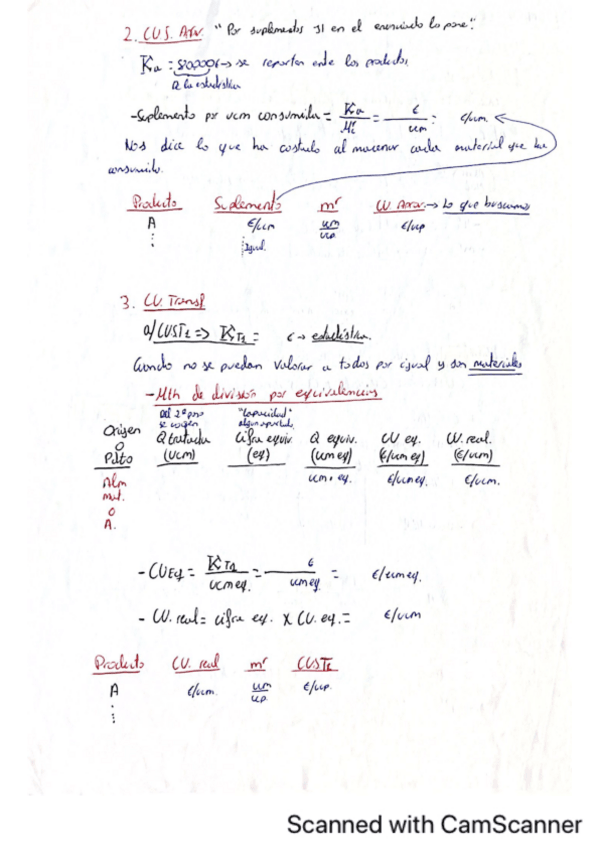 2. CU S. Atv. "Por suplementos si en el enunciado lo pone".
Ka = → se reparten ente los productos
Q la estadística
- Suplemento por ucm consumida = Ka / Mi = € / um = €/um.
Nos dice lo que ha costado al macenar cada material que ha
consumido.
Producto Suplemento mr CU Amar. → Lo que buscamos
A €/um um/up €/up
⋮ igual.
3. CU. Transf
a/ CUST1 => KT1 = € → estadística.
Cuando no se puedan valorar a todos por igual y son materiales
- Mth de división por equivalencias
Del 2º paso se cogen "Capacidad"
Origen o Pdto Q tratada (ucm) Cifra equiv. (eq) Q equiv. (um eq) CU eq. (€/um eq) CU. real. (€/um)
Alm mat. o A. um. eq. €/um eq. €/ucm.
- CUEq = KT1 / ucm eq. = € / um eq. = €/um eq.
- CU. real = cifra eq. x CU. eq. = €/um
Producto CU. real mr CUST1
A €/um. um/up €/up.
⋮
Scanned with CamScanner